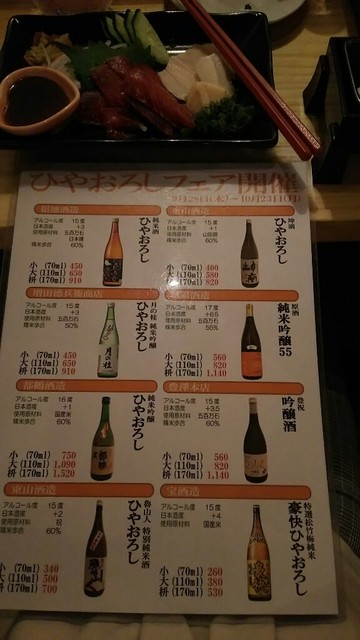 ひやおろしフェア開催
9月28日(木)〜10月23日(日)
招徳酒造
純米酒
ひやおろし
アルコール度 15度
日本酒度 +3
使用原材料 五百万石
日本晴
精米歩合 60%
小 (70ml) 450
大 (110ml) 650
枡 (170ml) 910
ひやおろし
アルコール度 15度
日本酒度 +1
使用原材料 山田錦
精米歩合 60%
小 (70ml) 400
大 (110ml) 580
枡 (170ml) 820
増田德兵衛商店
月の桂 純米吟醸
ひやおろし
アルコール度 15度
日本酒度 +3
使用原材料 五百万石
精米歩合 50%
小 (70ml) 450
大 (110ml) 650
枡 (170ml) 910
原酒
純米吟醸55
アルコール度 17度
日本酒度 +6.5
使用原材料 五百万石
精米歩合 55%
小 (70ml) 560
大 (110ml) 820
枡 (170ml) 1,140
都鶴酒造
純米吟醸
ひやおろし
アルコール度 16度
日本酒度 +1
使用原材料 国産米
精米歩合 60%
小 (70ml) 750
大 (110ml) 1,090
枡 (170ml) 1,520
豊澤本店
豊祝
吟醸酒
アルコール度 15度
日本酒度 +3.5
使用原材料 五百万石
精米歩合 60%
小 (70ml) 560
大 (110ml) 820
枡 (170ml) 1,140
東山酒造
魯山人 特別純米酒
ひやおろし
アルコール度 15度
日本酒度 +2
使用原材料 祝
精米歩合 60%
小 (70ml) 340
大 (110ml) 500
枡 (170ml) 700
宝酒造
特選松竹梅純米
豪快ひやおろし
アルコール度 15度
日本酒度 +4
使用原材料 国産米
小 (70ml) 260
大 (110ml) 380
枡 (170ml) 530